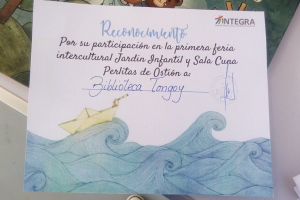 Reconocimiento
INTEGRA
Por su participación en la primera feria
intercultural Jardín Infantil y Sala Cuna
Perlitas de Ostión a:
Biblioteca Tongoy